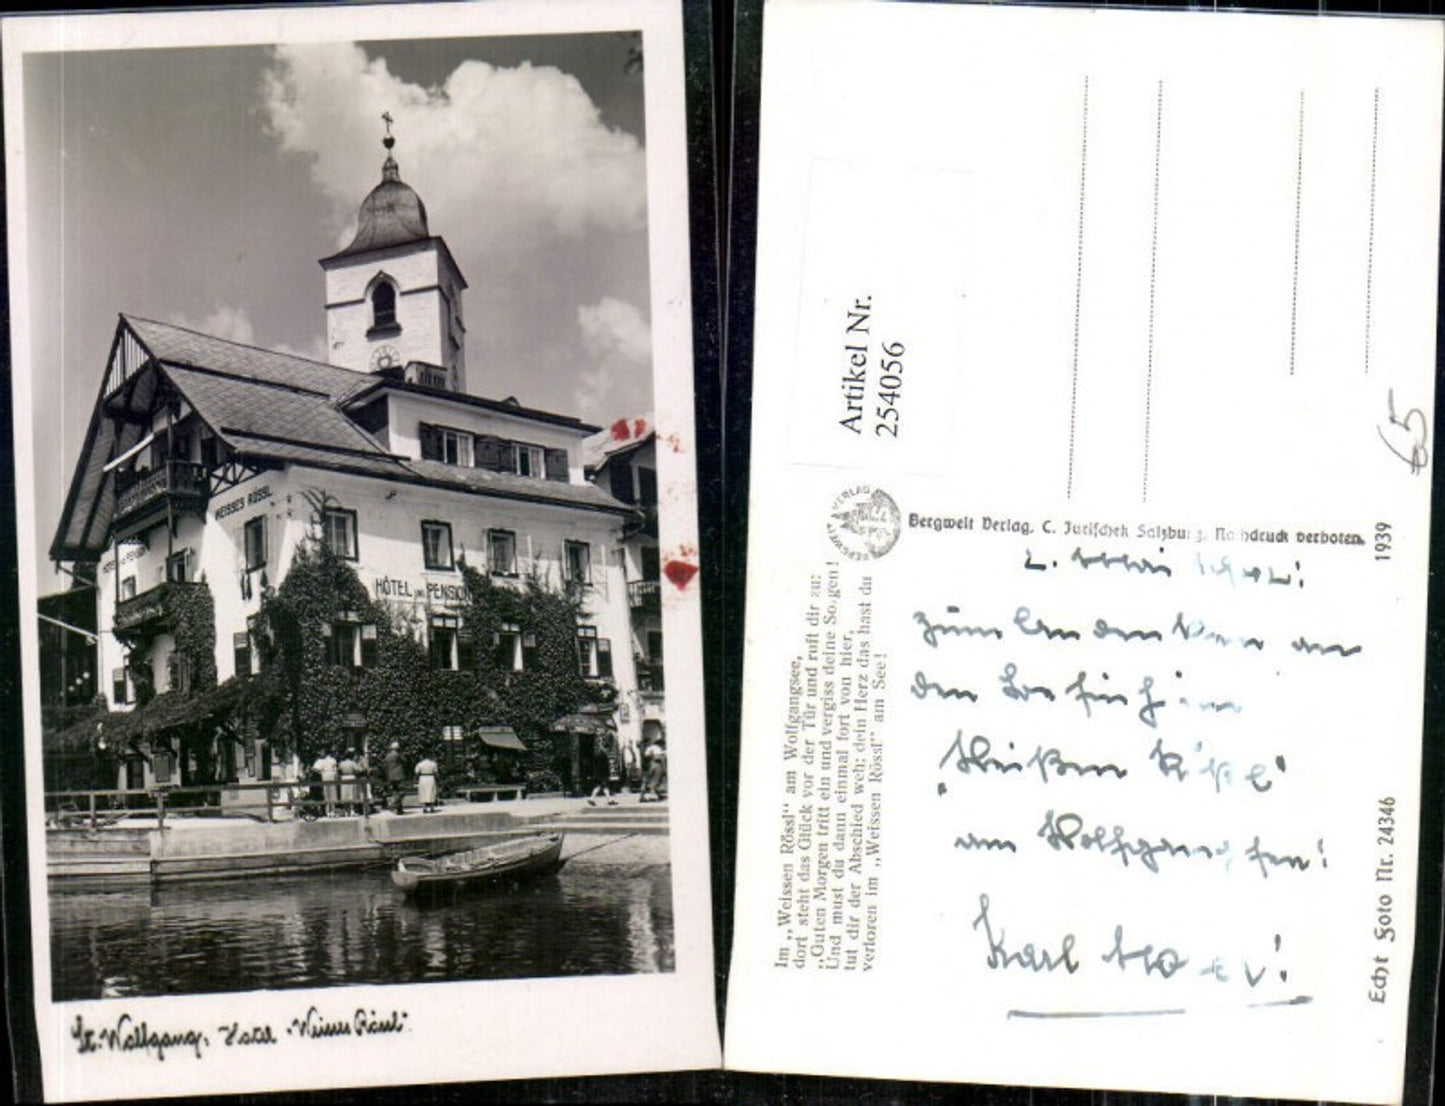 WEISSES RÖSSL
HÔTEL PENSION
St. Wolfgang, Hotel "Weisses Rössl".
Artikel Nr.
254056
65
Bergwelt Verlag, C. Jurischek Salzburg. Nachdruck verboten.
1939
Im „Weissen Rössl" am Wolfgangsee,
dort steht das Glück vor der Tür und ruft dir zu:
„Guten Morgen tritt ein und vergiss deine Sorgen!
Und must du dann einmal fort von hier,
tut dir der Abschied weh; dein Herz das hast du
verloren im „Weissen Rössl" am See!
Zum an
den
"Weißen Rössl"
am Wolfgangsee!
Karl
Echt Foto Nr. 24346